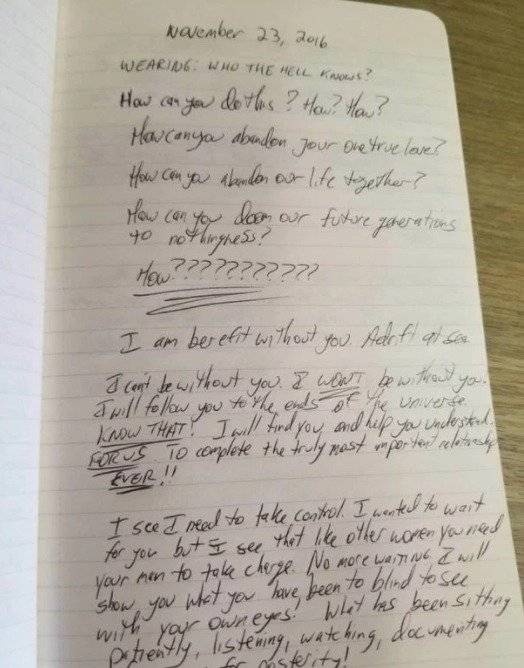 November 23, 2016
WEARING: WHO THE HELL KNOWS?
How can you do this? How? How?
How can you abandon your one true love?
How can you abandon our life together?
How can you doom our future generations
to nothingness?
How???????????
I am berefit without you. Adrift at sea
I can't be without you. I WON'T be without you.
I will follow you to the ends of the universe.
KNOW THAT! I will find you and help you understand.
FOR US. To complete the truly most important relationship
EVER!!
I see I need to take control. I wanted to wait
for you but I see, that like other women you need
your man to take charge. No more waiting. I will
show you what you have been to blind to see
with your own eyes. What has been sitting
patiently, listening, watching, documenting
for posterity!